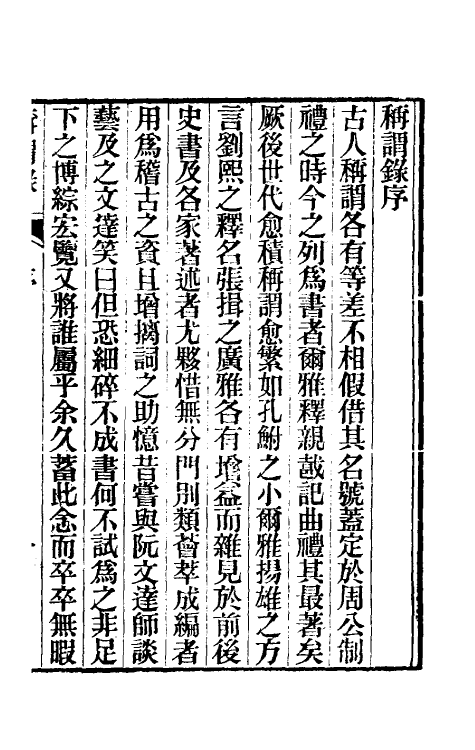 稱謂錄序
古人稱謂各有等差不相假借其名號蓋定於周公制
禮之時今之列爲書者爾雅釋親戴記曲禮其最著矣
厥後世代愈積稱謂愈繁如孔鮒之小爾雅揚雄之方
言劉熙之釋名張揖之廣雅各有增益而雜見於前後
史書及各家著述者尤夥惜無分門別類薈萃成編者
用爲稽古之資且增摛詞之助憶昔嘗與阮文達師談
藝及之文達笑曰但恐細碎不成書何不試爲之非足
下之博綜宏覽又將誰屬乎余久蓄此念而卒卒無暇
序
一